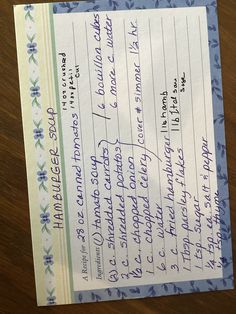 HAMBURGER SOUP
A Recipe for: 28 oz canned tomatoes 14 oz crushed
14 oz petit
cut
Ingredients: (1) tomato soup
(2) c. shredded carrots
2 c. shredded potatoes
1/2 c. chopped onion
1 c. chopped celery
6 c. water
3 c. fried hamburger 1 lb hamb
1 lb Ital sau
sage
1 Tbsp parsley flakes
1 tsp. sugar
1/4 tsp ea salt & pepper
thyme
6 bouillon cubes
6 more c. water
cover & simmer 1 1/2 hr.